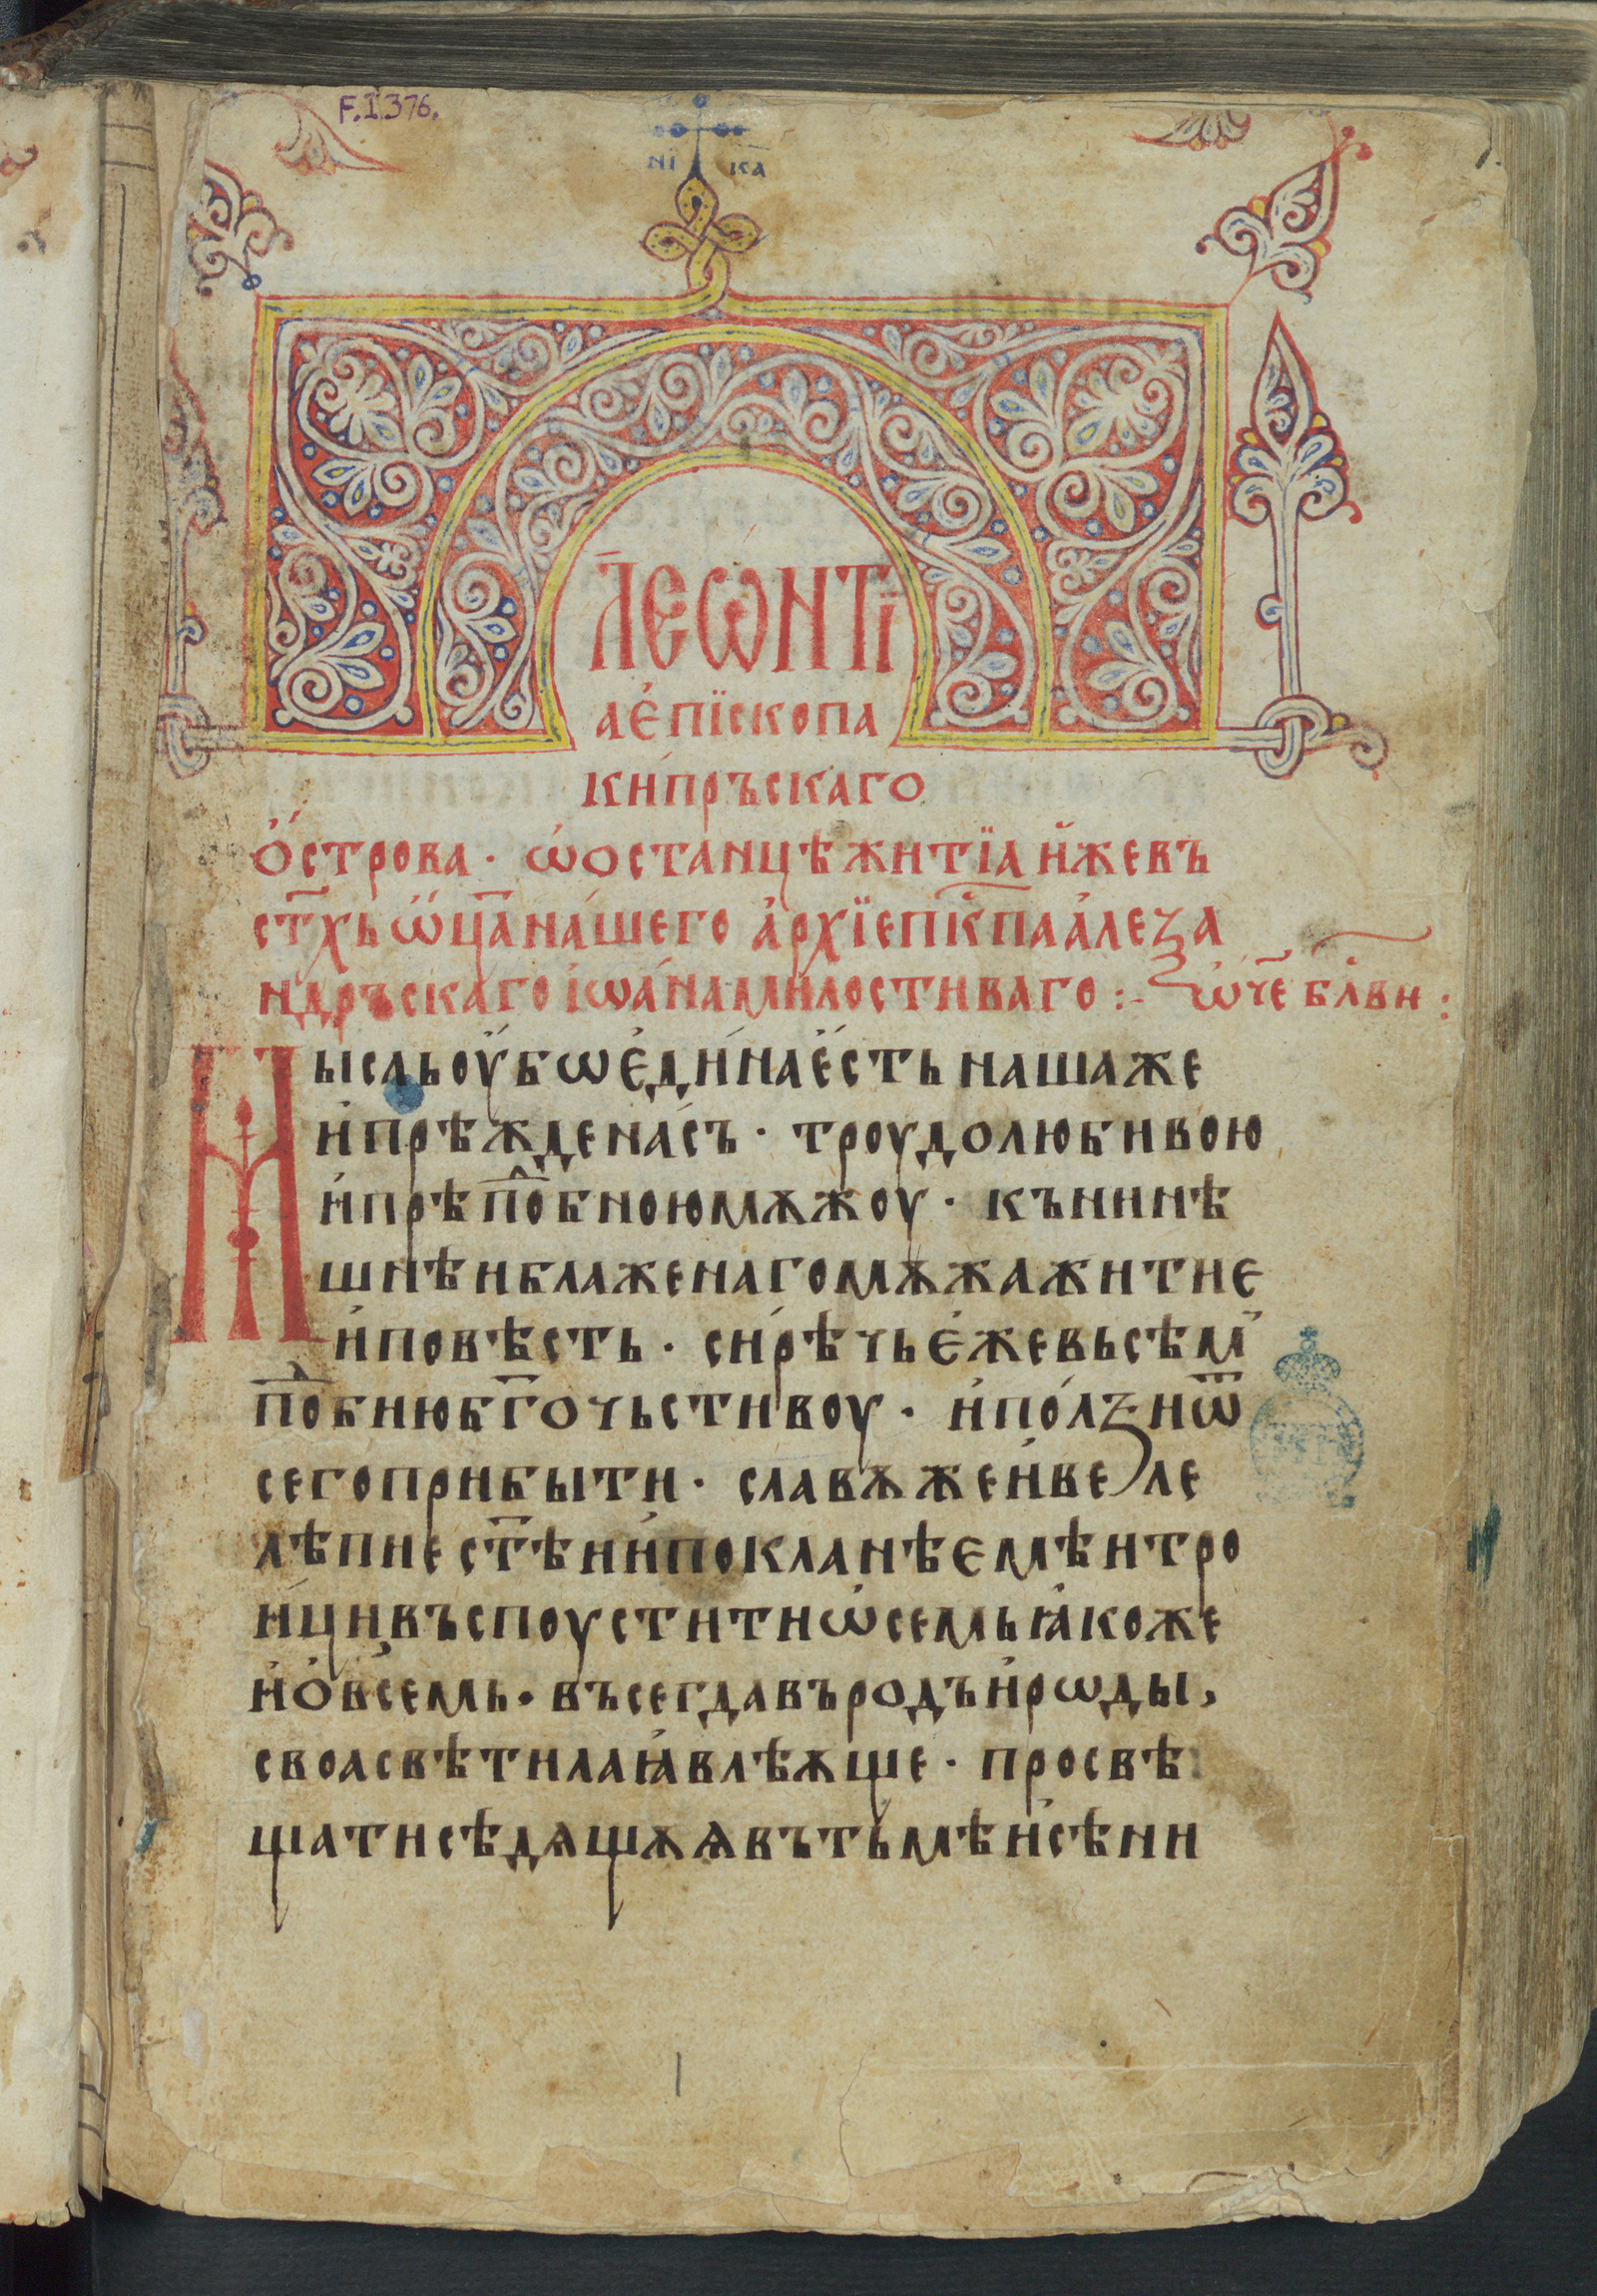 F.I.376.
НІ КА
ЛЕѠНТІ
АЕ҆ПЇСКОПА
КИ́ПРЪСКАГО
Ѻ҆́СТРОВА · Ѡ҆ОСТАНЦѢЖИТЇАИ҆́ЖЕВЪ
СТ҃ХЬѠ҆Ц҃АНА́ШЕГО А҆РХЇЕПК҃ПАА҆ЛЕѮА
НДРЪСКАГОІѠА́НАМИ́ЛОСТИВАГО :- Ѡ҆Ч҃Е БЛ҃ВИ :
МЫСЛЬОУ҆БѠЕ҆ДИ́НАЕ҆́СТЬНАШАЖЕ
И҆ПРѢЖДЕНА́СЪ · ТРОУДОЛЮБИВОЮ
И҆ПРѢПⷣ҇ОБНОЮМѪЖОУ · КЪНИНѢ
ШНѢИБЛАЖЕНАГОМѪЖАЖИТИЕ
И҆ПОВѢСТЬ · СИ́РѢЧЬЕ҆ЖЕВЬСѢМ
ПⷣОБНЮБГ҃ОЧЬСТИВОУ · И҆ПО́ЛꙀИѾ
СЕГОПРИБЫТИ · СЛАВѪЖЕИ҆ВЕЛЕ
ЛѢПИЕСТ҃ѢИИ҆ПОКЛАНѢЕМѢИТРО
И҆ЦИВЪСПОУСТИТИѠ҆СЕМЬꙖ҆КОЖЕ
И҆Ѻ҆ВСЕМЬ · ВЪСЕГДАВЪРОДЪИ҆РѠДЫ,
СВОАСВѢТИЛАꙖ҆ВЛѢѪЩЕ · ПРОСВѢ
ЩАТИСѢДѦЩѪѦВЪТЬМѢИ҆СѢНИ